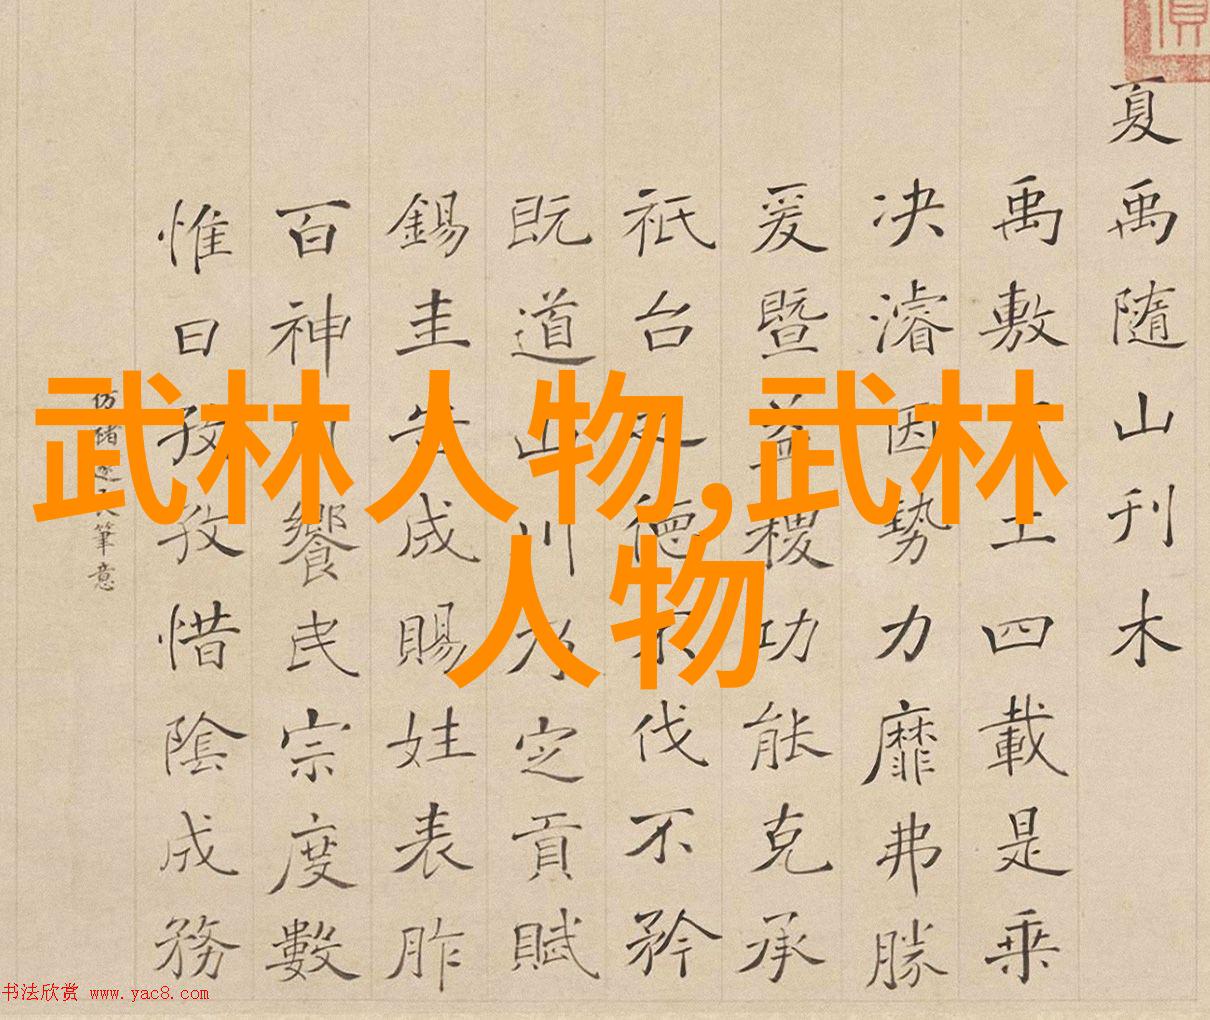 武林人物,武林
人物
夏禹隨山刊木
禹敷土四載是乘
决濬因勢力靡弗勝
爰暨益稷功能克承
祇台德不伐不矜
既道山川乃定貢賦
錫圭告成賜姓表胙
百神饗民宗度數
惟日孜孜惜陰成務
仿褚遂良筆意
书法欣赏 www.yac8.com